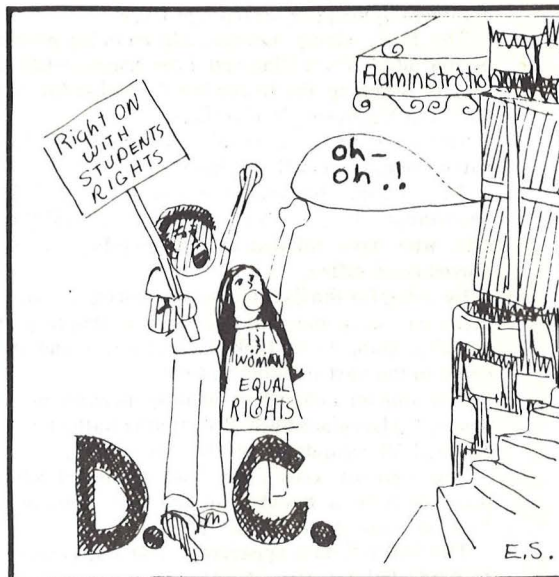 Administration
Right ON
WITH
STUDENTS
RIGHTS
oh-
oh.!
WOMAN
EQUAL
RIGHTS
D.C.
E.S.